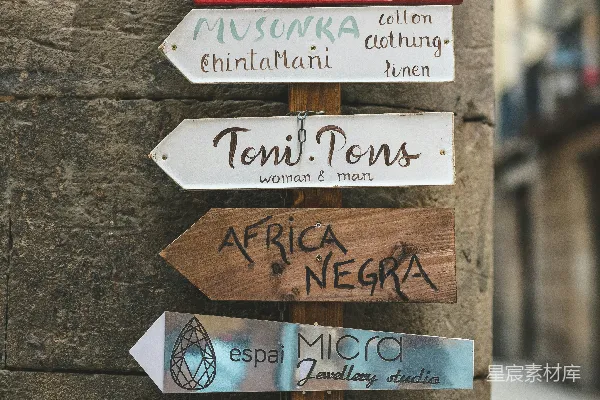 MUSONKA
ChintaMani
cotton
clothing.
linen
Toni. Pons
woman & man
AFRICA
NEGRA
espai MICRA
Jewellery studio
星宸素材库